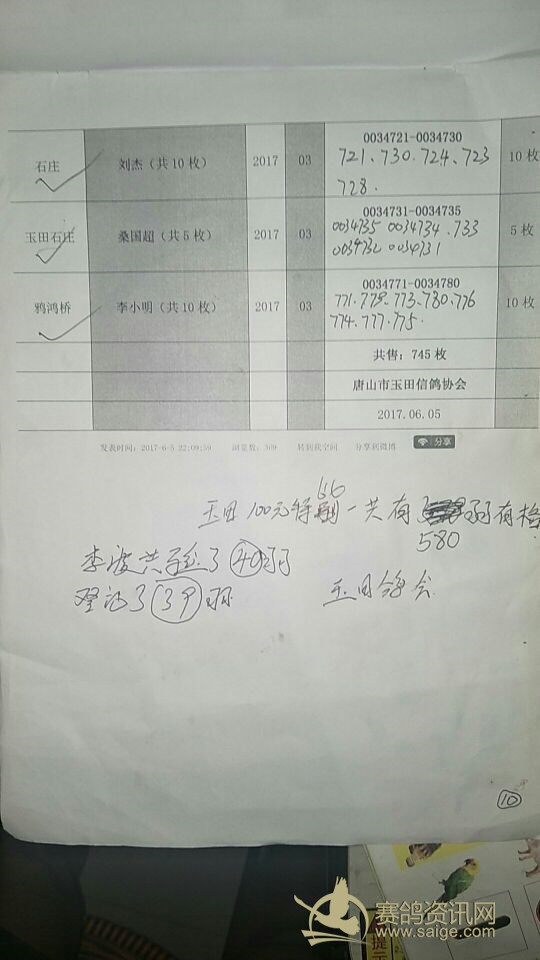 0034721-0034730
石庄 刘杰（共10枚） 2017 03 721、730、724、723 10枚
728.
0034731-0034735
玉田石庄 桑国超（共5枚） 2017 03 0034735 0034734 .733 5枚
0034732 0034731
0034771-0034780
鸦鸿桥 李小明（共10枚） 2017 03 771.779.773.780.776 10枚
774.777.775.
共售：745枚
唐山市玉田信鸽协会
2017.06.05
发表时间：2017-6-5 22:09:59 浏览数：369 转到我空间 分享到微博 分享
玉田100元特 一共有 羽有格
580
李波共 了40羽
登记了39羽 玉田鸽会
10
赛鸽资讯网
www.saige.com
提示